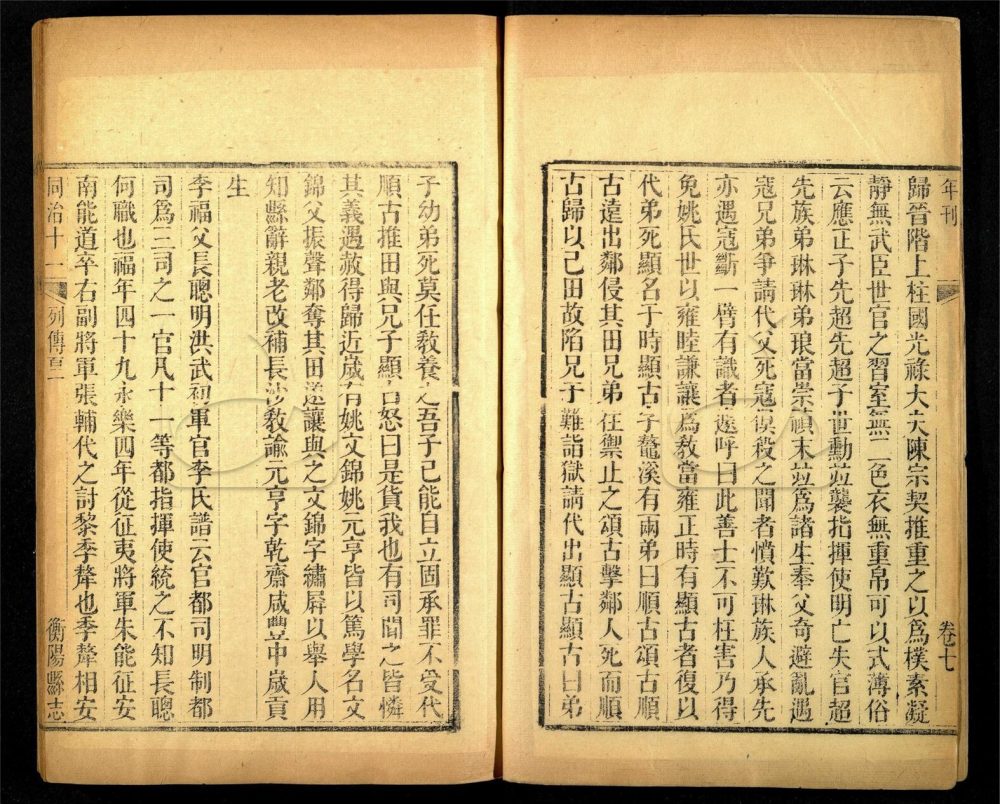 年刊
卷七
歸晉階上柱國光祿大夫陳宗契推重之以爲樸素凝
靜無武臣世官之習室無二色衣無重帛可以式薄俗
云應正子先超先超子世勳並襲指揮使明亡失官超
先族弟琳琳弟琅當崇禎末並爲諸生奉父奇避亂遇
寇兄弟爭請代父死寇俱殺之聞者憤歎琳族人承先
亦遇寇斷一臂有識者遽呼曰此善士不可枉害乃得
免姚氏世以雍睦謙讓爲敎當雍正時有顯古者復以
代弟死顯名于時顯古字鼇溪有兩弟曰順古頌古順
古遠出鄰侵其田兄弟往禦止之頌古擊鄰人死而順
古歸以己田故陷兄于難詣獄請代出顯古顯古曰弟
子幼弟死莫任敎養之吾子已能自立固承罪不受代
順古推田與兄子顯古怒曰是貨我也有司聞之皆憐
其義遇赦得歸近歲有姚文錦姚元亨皆以篤學名文
錦父振聲鄰奪其田遂讓與之文錦字繡屏以舉人用
知縣辭親老改補長沙敎諭元亨字乾齋咸豐中歲貢
生
李福父長聰明洪武初軍官李氏譜云官都司明制都
司爲三司之一官凡十一等都指揮使統之不知長聰
何職也福年四十九永樂四年從征夷將軍朱能征安
南能道卒右副將軍張輔代之討黎季犛也季犛相安
同治十一
列傳
衡陽縣志